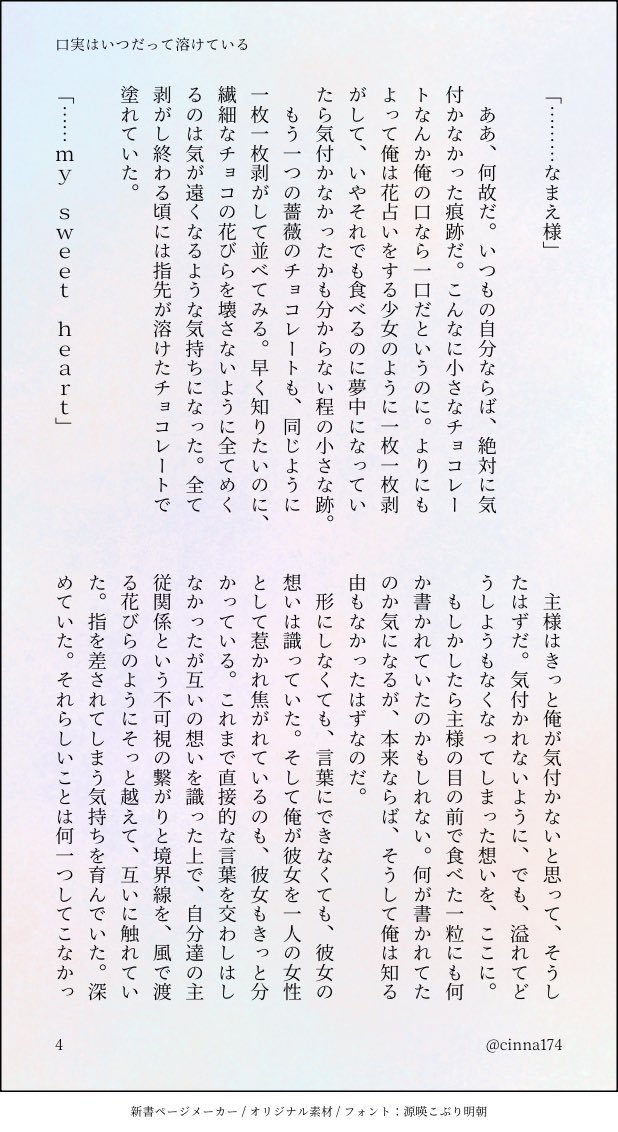 口実はいつだって溶けている
「………なまえ様」
　ああ、何故だ。いつもの自分ならば、絶対に気
付かなかった痕跡だ。こんなに小さなチョコレー
トなんか俺の口なら一口だというのに。よりにも
よって俺は花占いをする少女のように一枚一枚剥
がして、いやそれでも食べるのに夢中になってい
たら気付かなかったかも分からない程の小さな跡。
　もう一つの薔薇のチョコレートも、同じように
一枚一枚剥がして並べてみる。早く知りたいのに、
繊細なチョコの花びらを壊さないように全てめく
るのは気が遠くなるような気持ちになった。全て
剥がし終わる頃には指先が溶けたチョコレートで
塗れていた。
「……ｍｙ　ｓｗｅｅｔ　ｈｅａｒｔ」
　主様はきっと俺が気付かないと思って、そうし
たはずだ。気付かれないように、でも、溢れてど
うしようもなくなってしまった想いを、ここに。
　もしかしたら主様の目の前で食べた一粒にも何
か書かれていたのかもしれない。何が書かれてた
のか気になるが、本来ならば、そうして俺は知る
由もなかったはずなのだ。
　形にしなくても、言葉にできなくても、彼女の
想いは識っていた。そして俺が彼女を一人の女性
として惹かれ焦がれているのも、彼女もきっと分
かっている。これまで直接的な言葉を交わしはし
なかったが互いの想いを識った上で、自分達の主
従関係という不可視の繋がりと境界線を、風で渡
る花びらのようにそっと越えて、互いに触れてい
た。指を差されてしまう気持ちを育んでいた。深
めていた。それらしいことは何一つしてこなかっ
4
@cinna174
新書ページメーカー / オリジナル素材 / フォント：源暎こぶり明朝